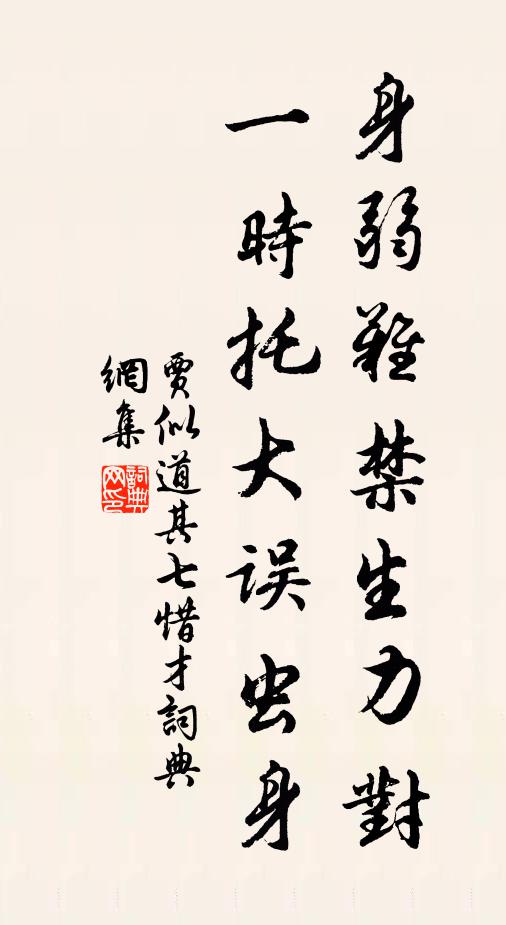 身弱難禁生力對
一時托大误虫身
賈似道其七惜才詞典
網集
詞典
网印